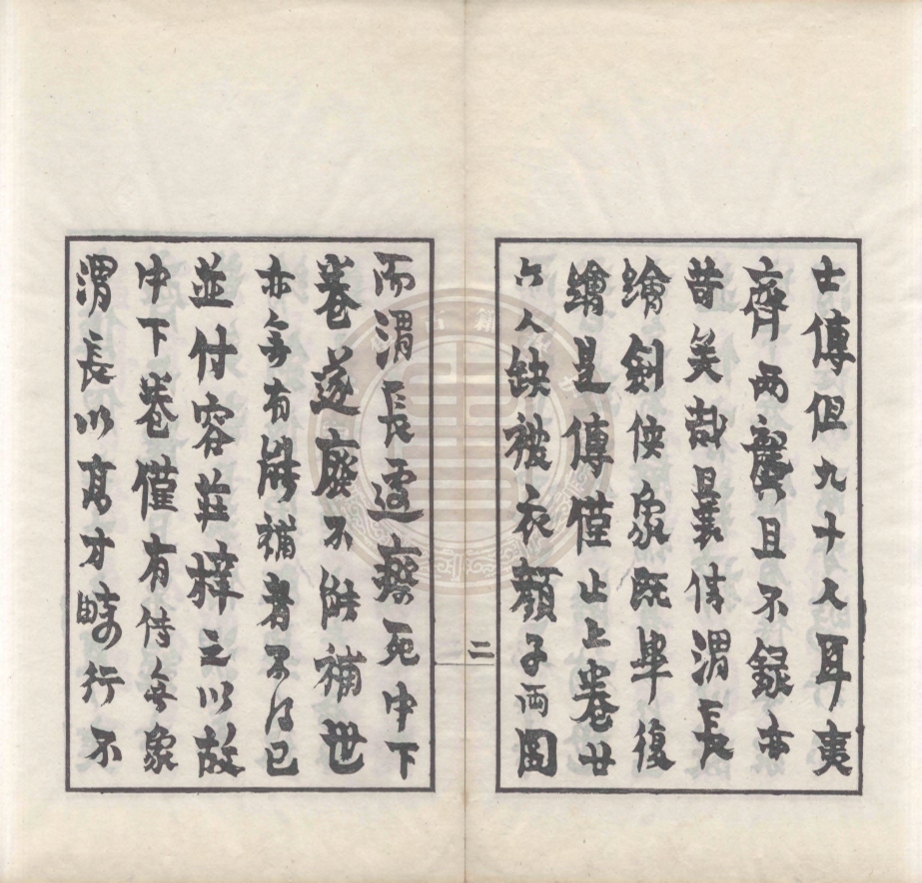 士傳但九十人耳夷
齊兩龔且不錄亦
苛矣哉曩倩渭長
繪劍俠象既畢復
繪是傳僅止上卷廿
六人缺被衣顏子兩圖
二
而渭長遽瘵死中下
卷遂廢不能補世
亦無有能補者不得已
並付容莊梓之以故
中下卷僅有傳無象
渭長以高才畸行不